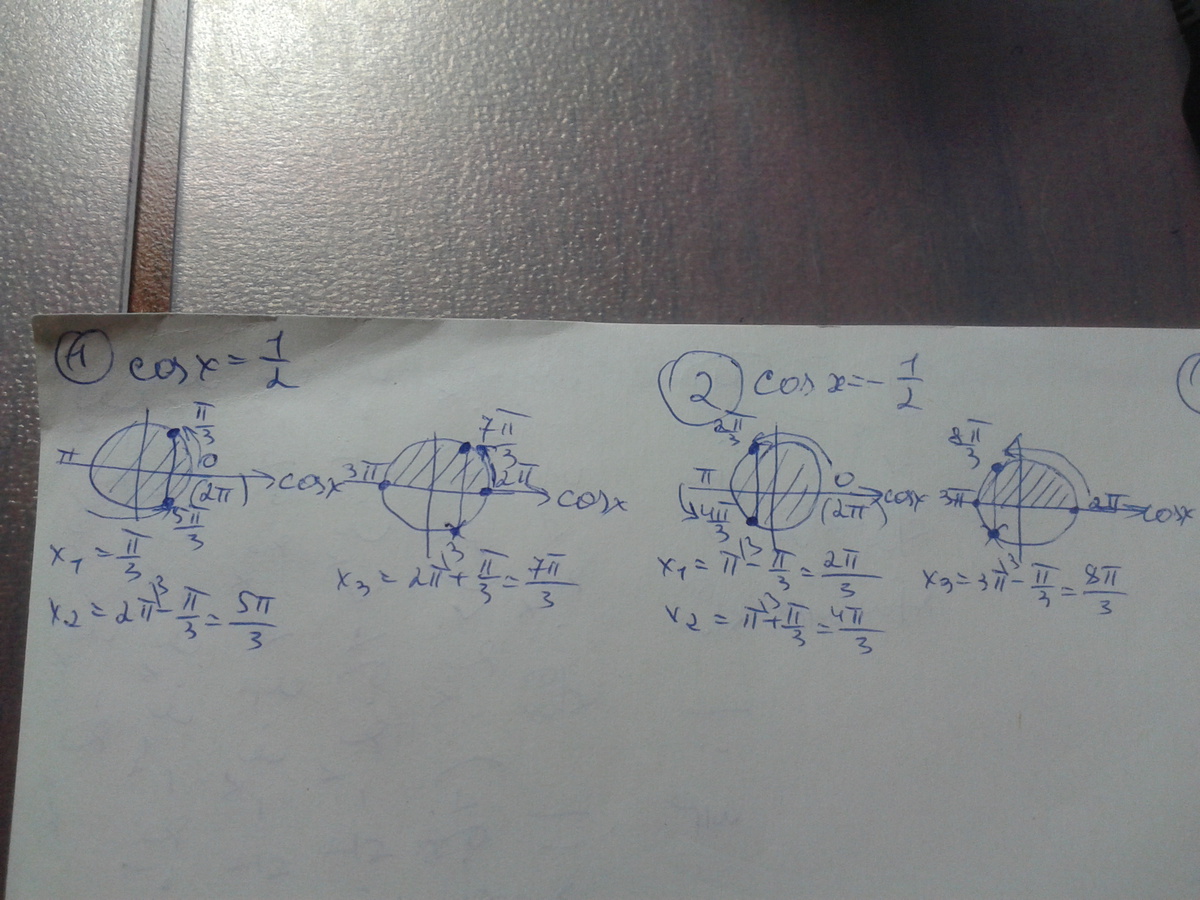 ① cos x = 1/2
π/3
π
0
(2π)
cos x
5π/3
x₁ = π/3
x₂ = 2π - π/3 = 5π/3
7π/3
3π
2π
cos x
x₃ = 2π + π/3 = 7π/3
② cos x = - 1/2
2π/3
π
0
(2π)
cos x
4π/3
x₁ = π - π/3 = 2π/3
x₂ = π + π/3 = 4π/3
8π/3
3π
2π
cos x
x₃ = 3π - π/3 = 8π/3